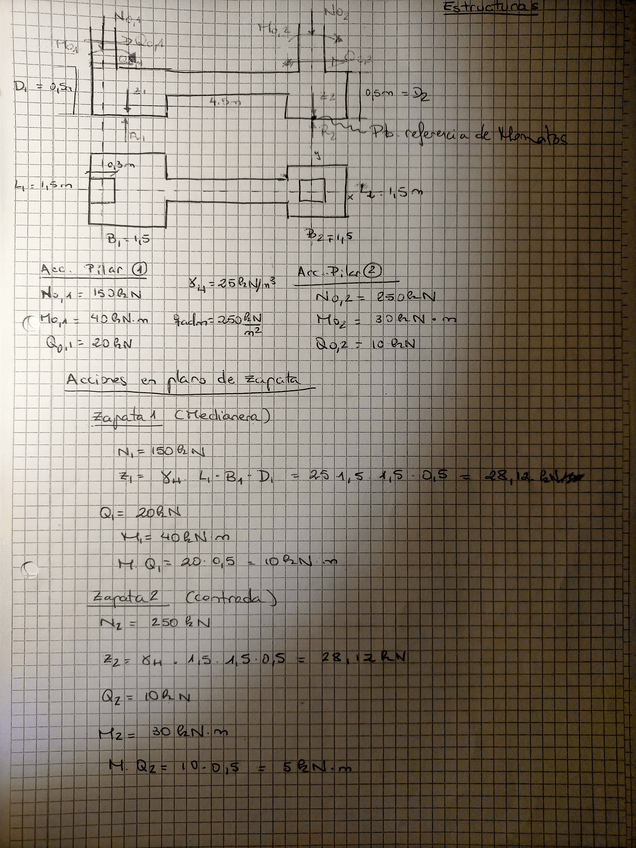 Estructuras
N0,1
N0,2
M0,1
Q0,1
M0,2
Q0,2
D1 = 0,5m
Z1
4.5m
Z2
0,5m = D2
R1
R2
Pto. referencia de Momentos
0,3m
y
L1 = 1,5m
x
L2 = 1,5m
B1 = 1,5
B2 = 1,5
Acc. Pilar ①
γH = 25kN/m³
Acc. Pilar ②
N0,1 = 150kN
N0,2 = 250kN
M0,1 = 40kN·m
qadm = 250 kN/m²
M02 = 30kN·m
Q0,1 = 20kN
Q0,2 = 10kN
Acciones en plano de zapata
Zapata 1 (Medianera)
N1 = 150kN
Z1 = γH · L1 · B1 · D1 = 25 1,5 · 1,5 · 0,5 = 28,12 kN
Q1 = 20kN
M1 = 40kN·m
M. Q1 = 20·0,5 = 10kN·m
Zapata 2 (Centrada)
N2 = 250 kN
Z2 = γH · 1,5 · 1,5 · 0,5 = 28,12kN
Q2 = 10kN
M2 = 30kN·m
M. Q2 = 10·0,5 = 5kN·m